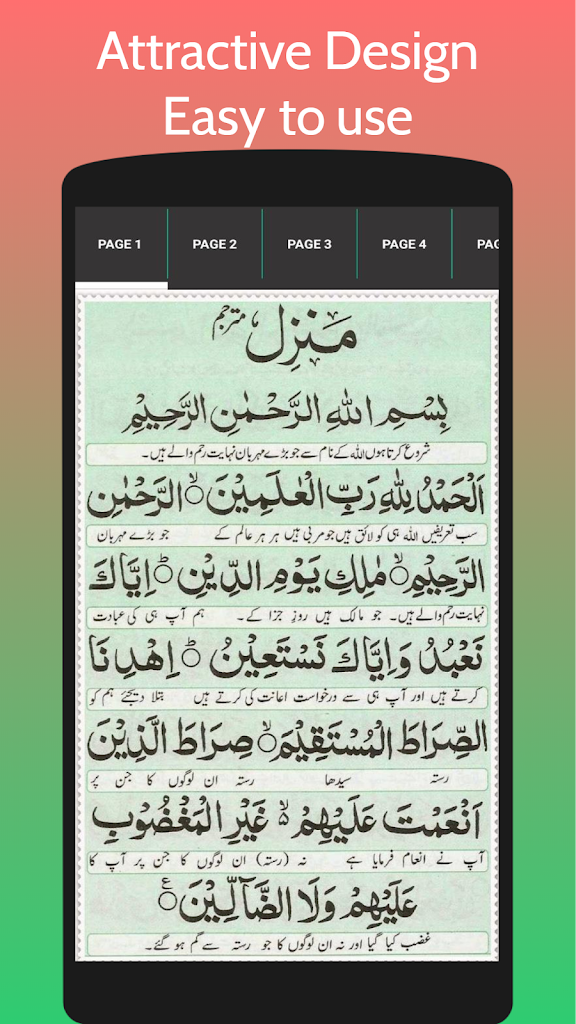 Attractive Design
Easy to use
PAGE 1 PAGE 2 PAGE 3 PAGE 4 PAG
مَنْزِل مترجم
بِسْمِ اللهِ الرَّحْمٰنِ الرَّحِيْمِ
شروع کرتا ہوں اللہ کے نام سے جو بڑے مہربان نہایت رحم والے ہیں۔
اَلْحَمْدُ لِلّٰهِ رَبِّ الْعٰلَمِيْنَ ۙ الرَّحْمٰنِ
سب تعریفیں اللہ ہی کو لائق ہیں جو مربی ہیں ہر ہر عالم کے جو بڑے مہربان
الرَّحِيْمِ ۙ مٰلِكِ يَوْمِ الدِّيْنِ ؕ اِيَّاكَ
نہایت رحم والے ہیں۔ جو مالک ہیں روز جزا کے۔ ہم آپ ہی کی عبادت
نَعْبُدُ وَاِيَّاكَ نَسْتَعِيْنُ ؕ اِهْدِنَا
کرتے ہیں اور آپ ہی سے درخواست اعانت کی کرتے ہیں بتلا دیجئے ہم کو
الصِّرَاطَ الْمُسْتَقِيْمَ ۙ صِرَاطَ الَّذِيْنَ
رستہ سیدھا رستہ ان لوگوں کا جن پر
اَنْعَمْتَ عَلَيْهِمْ ۙ غَيْرِ الْمَغْضُوْبِ
آپ نے انعام فرمایا ہے نہ (رستہ) ان لوگوں کا جن پر آپ کا
عَلَيْهِمْ وَلَا الضَّآلِّيْنَ ۧ
غضب کیا گیا اور نہ ان لوگوں کا جو رستہ سے گم ہو گئے۔